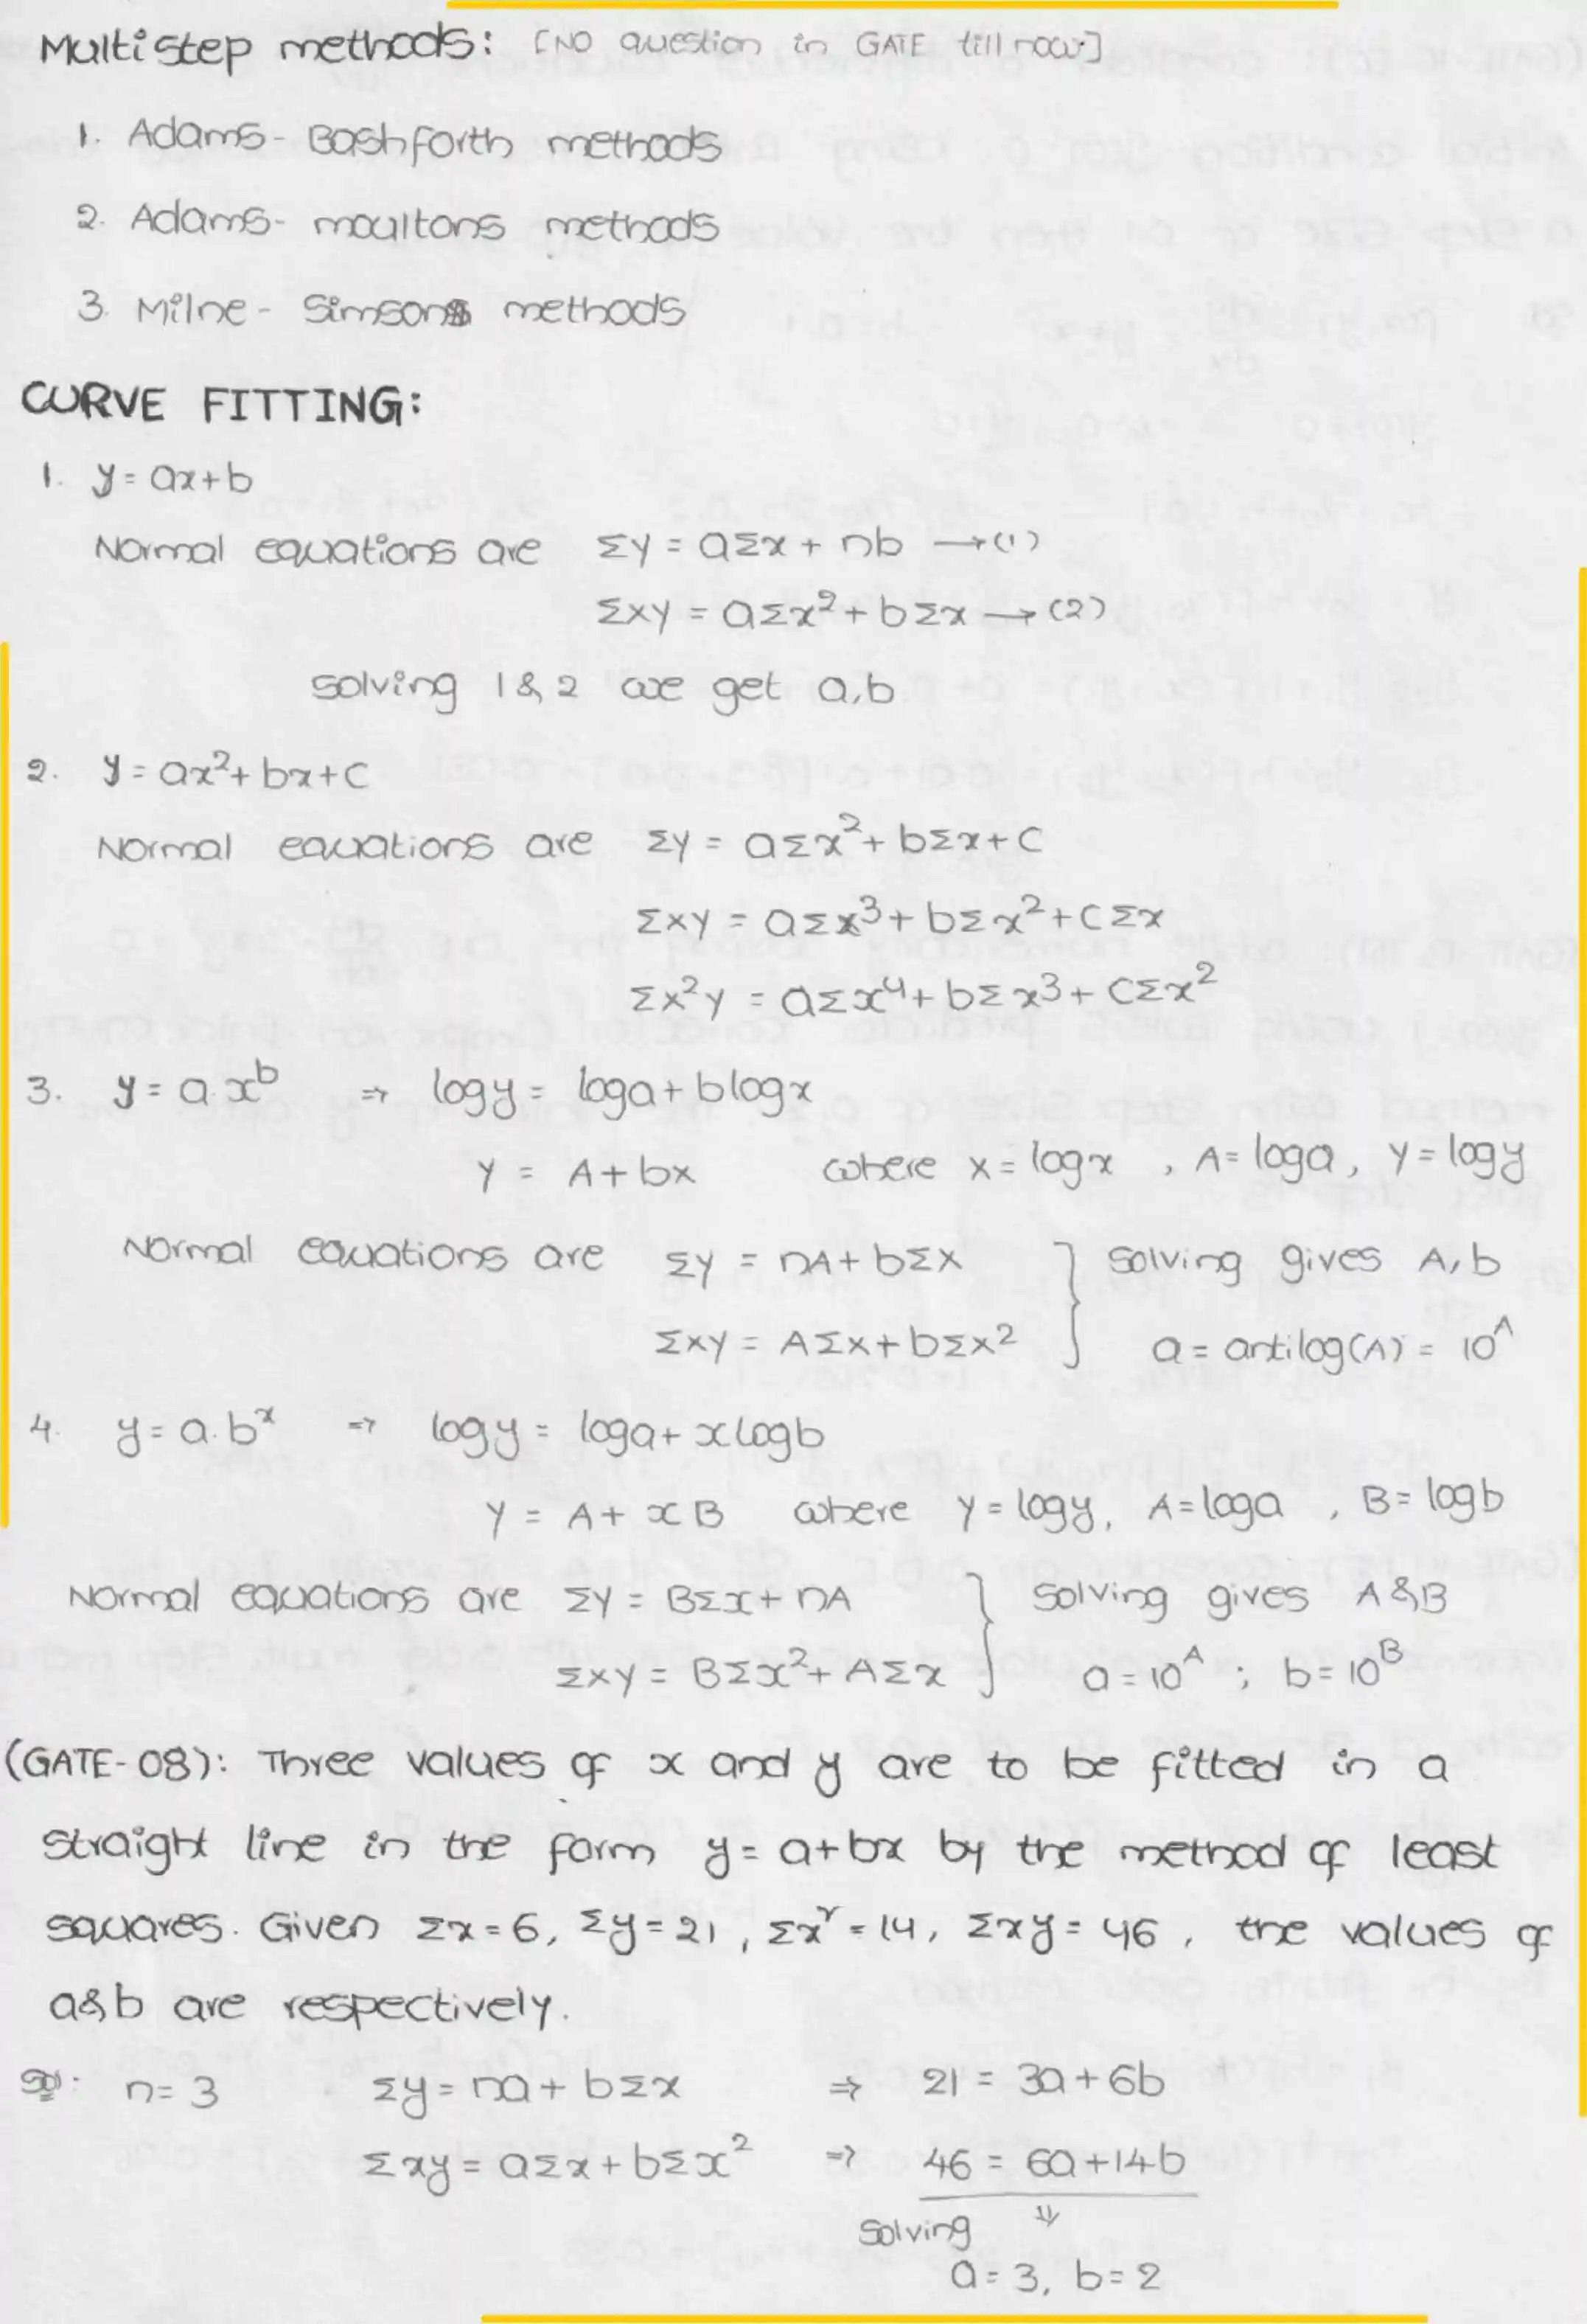 Multistep methods: [NO question in GATE till now]
1. Adams-Bashforth methods
2. Adams-moultons methods
3. Milne-Simsons methods
CURVE FITTING:
1. y = ax+b
Normal equations are Σy = aΣx + nb →(1)
Σxy = aΣx²+ bΣx →(2)
solving 1 & 2 we get a,b
2. y = ax²+ bx+c
Normal equations are Σy = aΣx²+ bΣx+c
Σxy = aΣx³+ bΣx²+cΣx
Σx²y = aΣx⁴+ bΣx³+ cΣx²
3. y = a.x^b ⇒ logy = loga+ blogx
Y = A+bx where x = logx , A = loga, Y = logy
Normal equations are Σy = nA+ bΣx } solving gives A, b
Σxy = AΣx+bΣx² } a = antilog(A) = 10^A
4. y = a.b^x ⇒ logy = loga+ xlogb
Y = A+ xB where Y = logy, A = loga , B = logb
Normal equations are Σy = BΣx+ nA } solving gives A & B
Σxy = BΣx²+ AΣx } a = 10^A ; b = 10^B
(GATE-08): Three values of x and y are to be fitted in a
straight line in the form y = a+bx by the method of least
squares. Given Σx = 6, Σy = 21, Σx² = 14, Σxy = 46, the values of
a&b are respectively.
Sol: n = 3 Σy = na+ bΣx ⇒ 21 = 3a+6b
Σxy = aΣx+bΣx² ⇒ 46 = 6a+14b
Solving ⇓
a = 3, b = 2